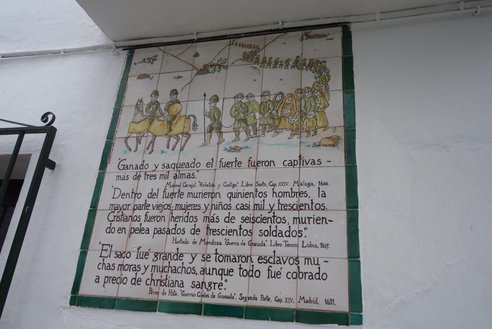 "Ganado y saqueado el fuerte fueron captivas
más de tres mil almas."
Mármol Carvajal, "Rebelion y Castigo". Libro Sexto, Cap. XXIV. Málaga, 1600.
"Dentro del fuerte murieron quinientos hombres, la
mayor parte viejos, mujeres y niños casi mil y trescientos.
Cristianos fueron heridos más de seiscientos, murien-
do en pelea pasados de trescientos soldados."
Hurtado de Mendoza, "Guerra de Granada". Libro Tercero. Lisboa,
"El saco fué grande y se tomaron esclavos mu-
chas moras y muchachos, aunque todo fué cobrado
a precio de christiana sangre."
de Hita. "Guerras Civiles de Granada". Segunda Parte, Cap. XIV. Madrid, 1631.